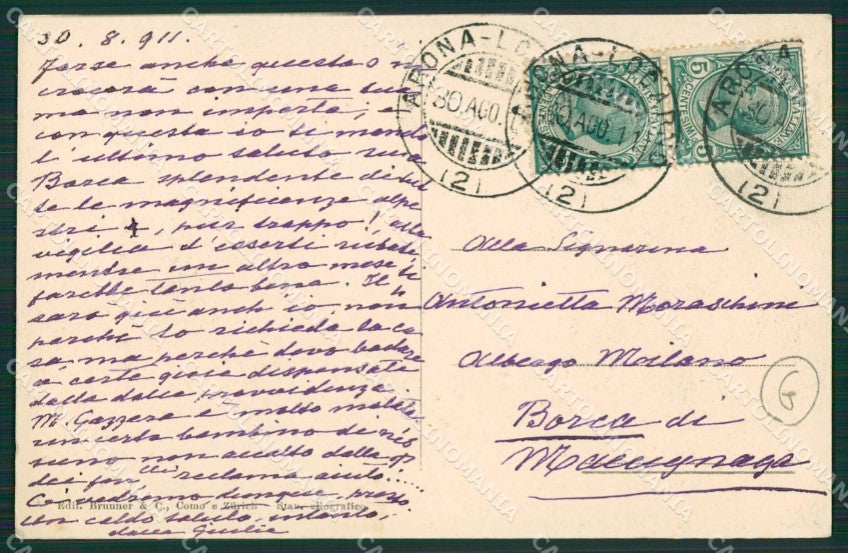 30. 8. 911.
Forse anche questa o in
crocerà con una tua
ma non importa; e
con questa io ti mando
l'ultimo saluto
Borca splendente di tut
te le magnificenze alpe
stri e, pur troppo!, alla
vigilia d'esserti rubate
mentre un altro mese ti
farebbe tanto bene. Il 4
sarò già anch'io non
perchè lo richieda la ca
sa, ma perchè devo badare
a certe gioie dispensate
dalla dolce provvidenza.
M. Gazzera è molto malata
un certo bambino di nes
suno non accolto dalle
reclama aiuto.....
Ci vedremo dunque, presto
con caldo saluto, intanto,
dalla Giulia
Edit. Brunner & C., Como e Zürich - Stab. eliografico
ARONA-LOC
30 AGO. 11
(2)
ARONA-LOC
30 AGO. 11
(2)
ARONA
30 A
(2)
5
Alla Signorina
Antonietta Moraschini
Albergo Milano
Borca di
Macugnaga
G
CARTOLINOMANIA